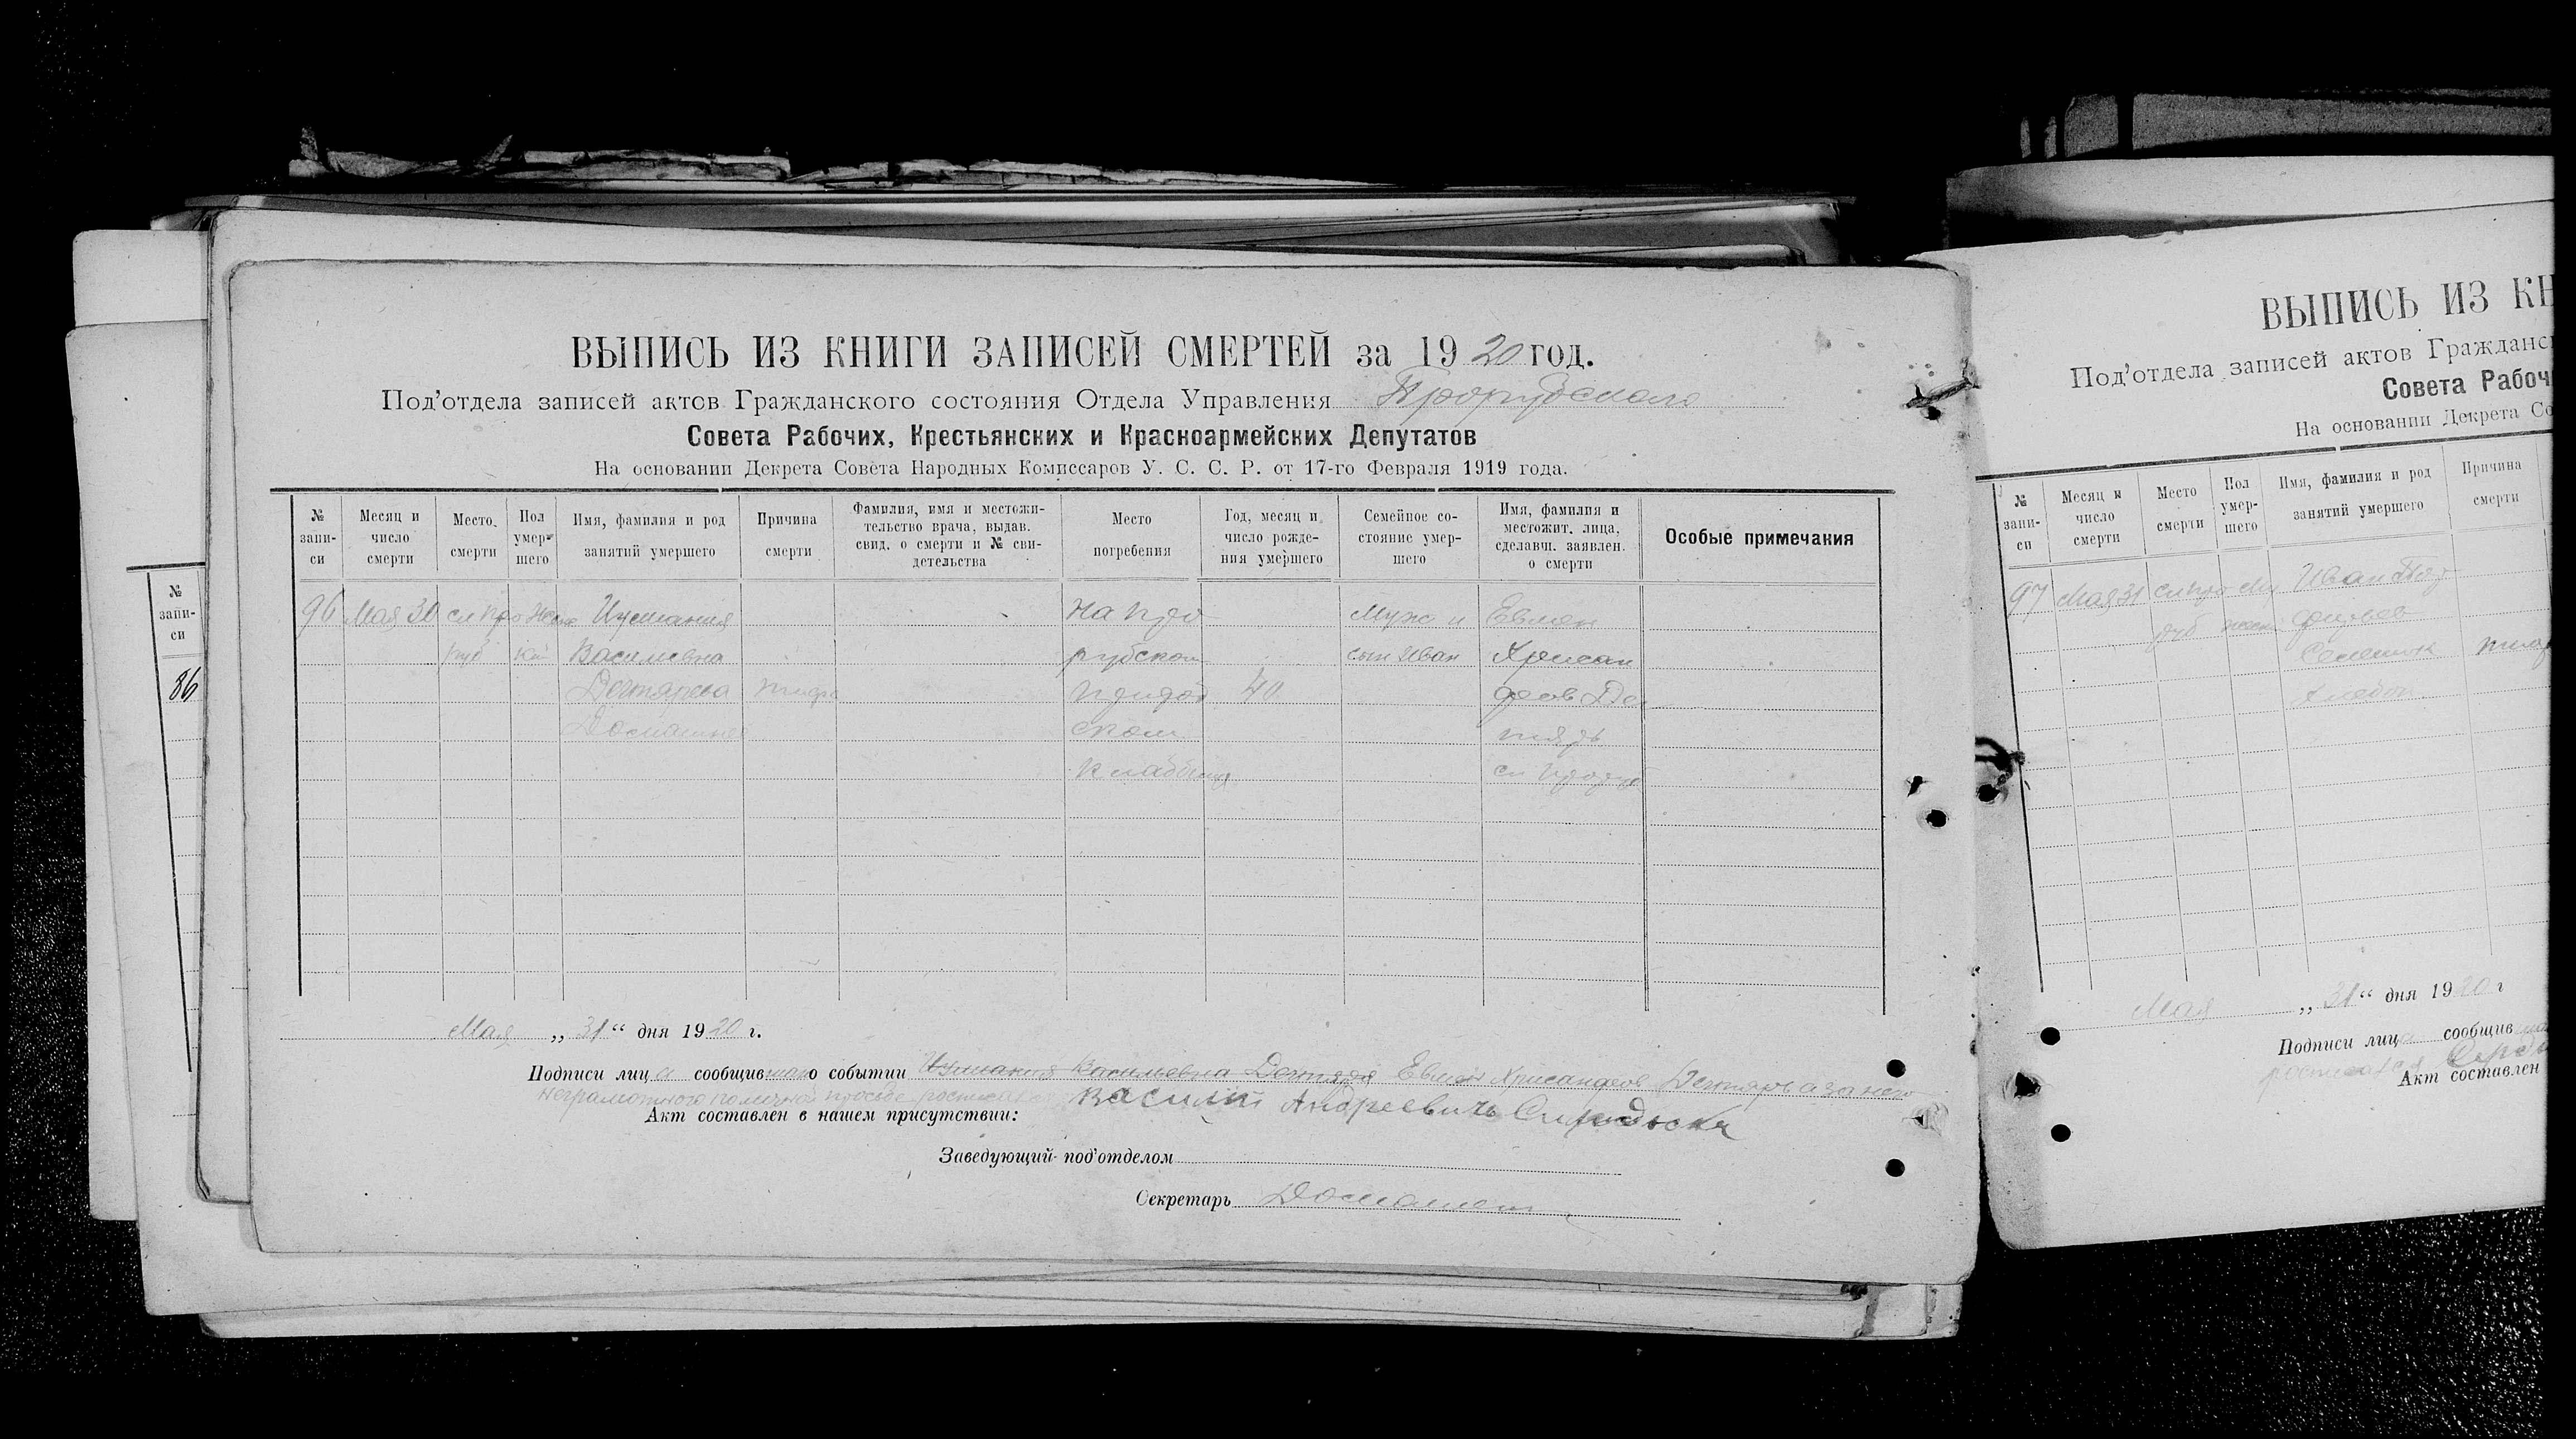 ВЫПИСЬ ИЗ КНИГИ ЗАПИСЕЙ СМЕРТЕЙ за 1920 год.
Под'отдела записей актов Гражданского состояния Отдела Управления Прорубского
Совета Рабочих, Крестьянских и Красноармейских Депутатов
На основании Декрета Совета Народных Комиссаров У. С. С. Р. от 17-го Февраля 1919 года.
№ запи-си
Месяц и число смерти
Место смерти
Пол умер-шего
Имя, фамилия и род занятий умершего
Причина смерти
Фамилия, имя и местожи-тельство врача, выдав. свид. о смерти и № сви-детельства
Место погребения
Год, месяц и число рожде-ния умершего
Семейное со-стояние умер-шего
Имя, фамилия и местожит. лица, сделавш. заявлен. о смерти
Особые примечания
96 Мая 30 сл Про Жен На Про Муж и
руб кий Василевна рубском сын Иван Хрисан
Дегтярева тифа приход 40 фов Де
ском тярь
кладбище сл Проруб
Мая „ 31 “ дня 1920 г.
Подписи лица сообщившаго событии Василевна Дегтяря Хрисанфов Дегтярь а за него
неграмотного по личной просьбе росписался Василий Андреевичь
Акт составлен в нашем присутствии:
Заведующий под'отделом
Секретарь
№ запи-си
86
ВЫПИСЬ ИЗ КН
Под'отдела записей актов Гражданс
Совета Рабоч
На основании Декрета Со
№ запи-си
Месяц и число смерти
Место смерти
Пол умер-шего
Имя, фамилия и род занятий умершего
Причина смерти
97 Мая 31 сл Про Му Иван
руб жеск
тиф
Мая „ 31 “ дня 1920 г
Подписи лица сообщив
Акт составлен